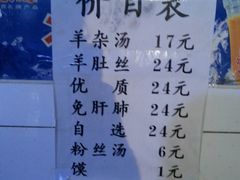 价目表
羊杂汤 17元
羊肚丝 24元
优质 24元
免肝肺 24元
自选 24元
粉丝汤 6元
馍 1元